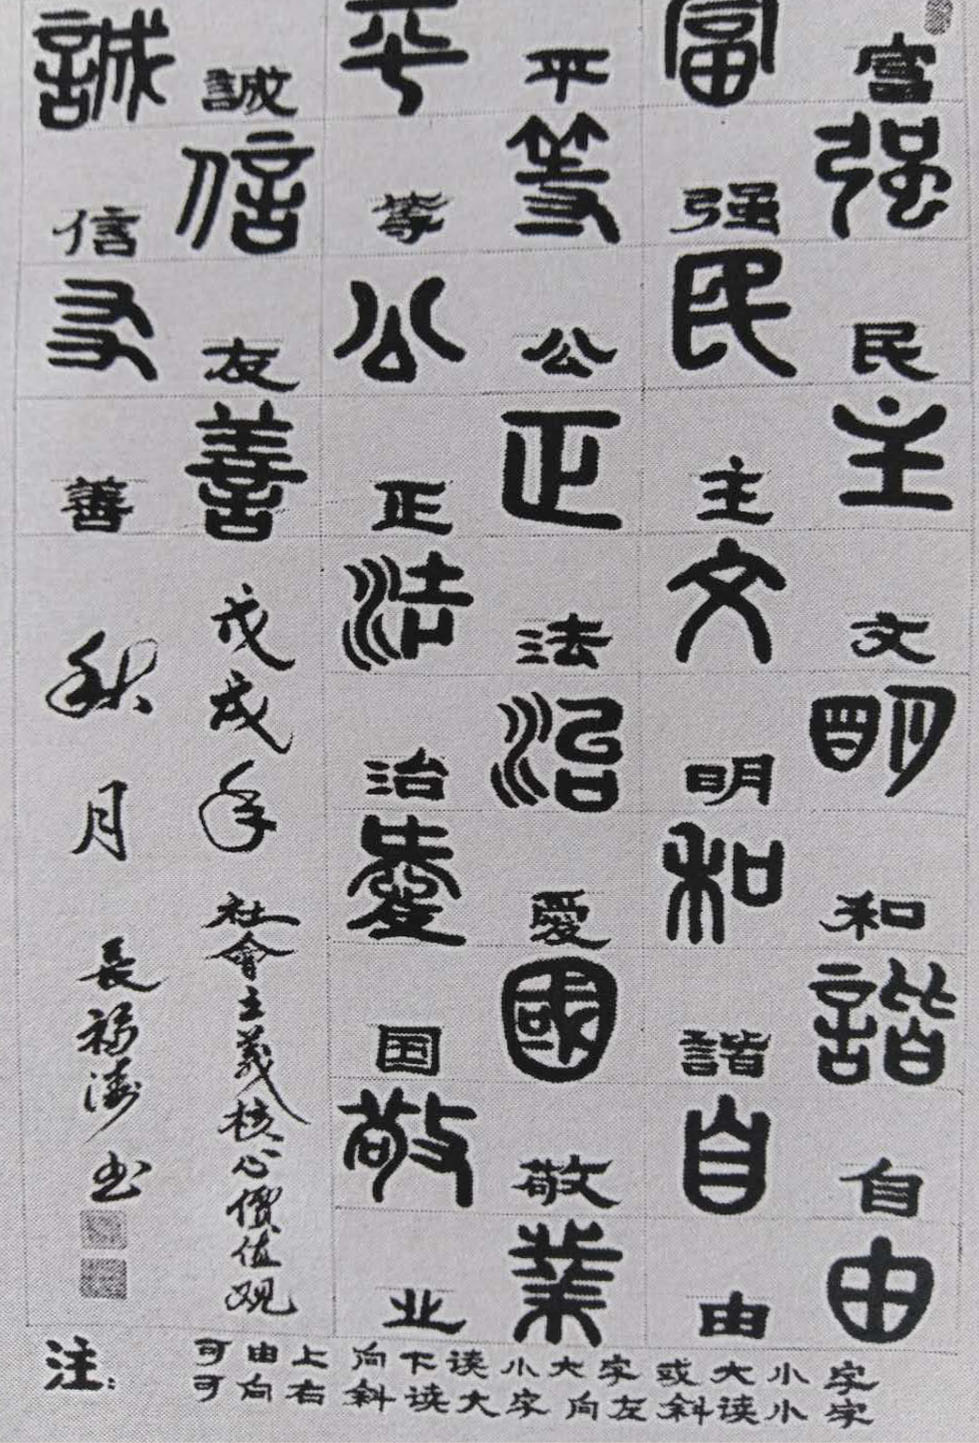 富强民主文明和諧自由
富强民主文明和諧自由
平等公正法治愛國敬業
平等公正法治愛国敬业
誠信友善戊戌年社會主義核心價值观
誠信友善秋月長福濤书
注：可由上向下读小大字或大小字
可向右斜读大字向左斜读小字